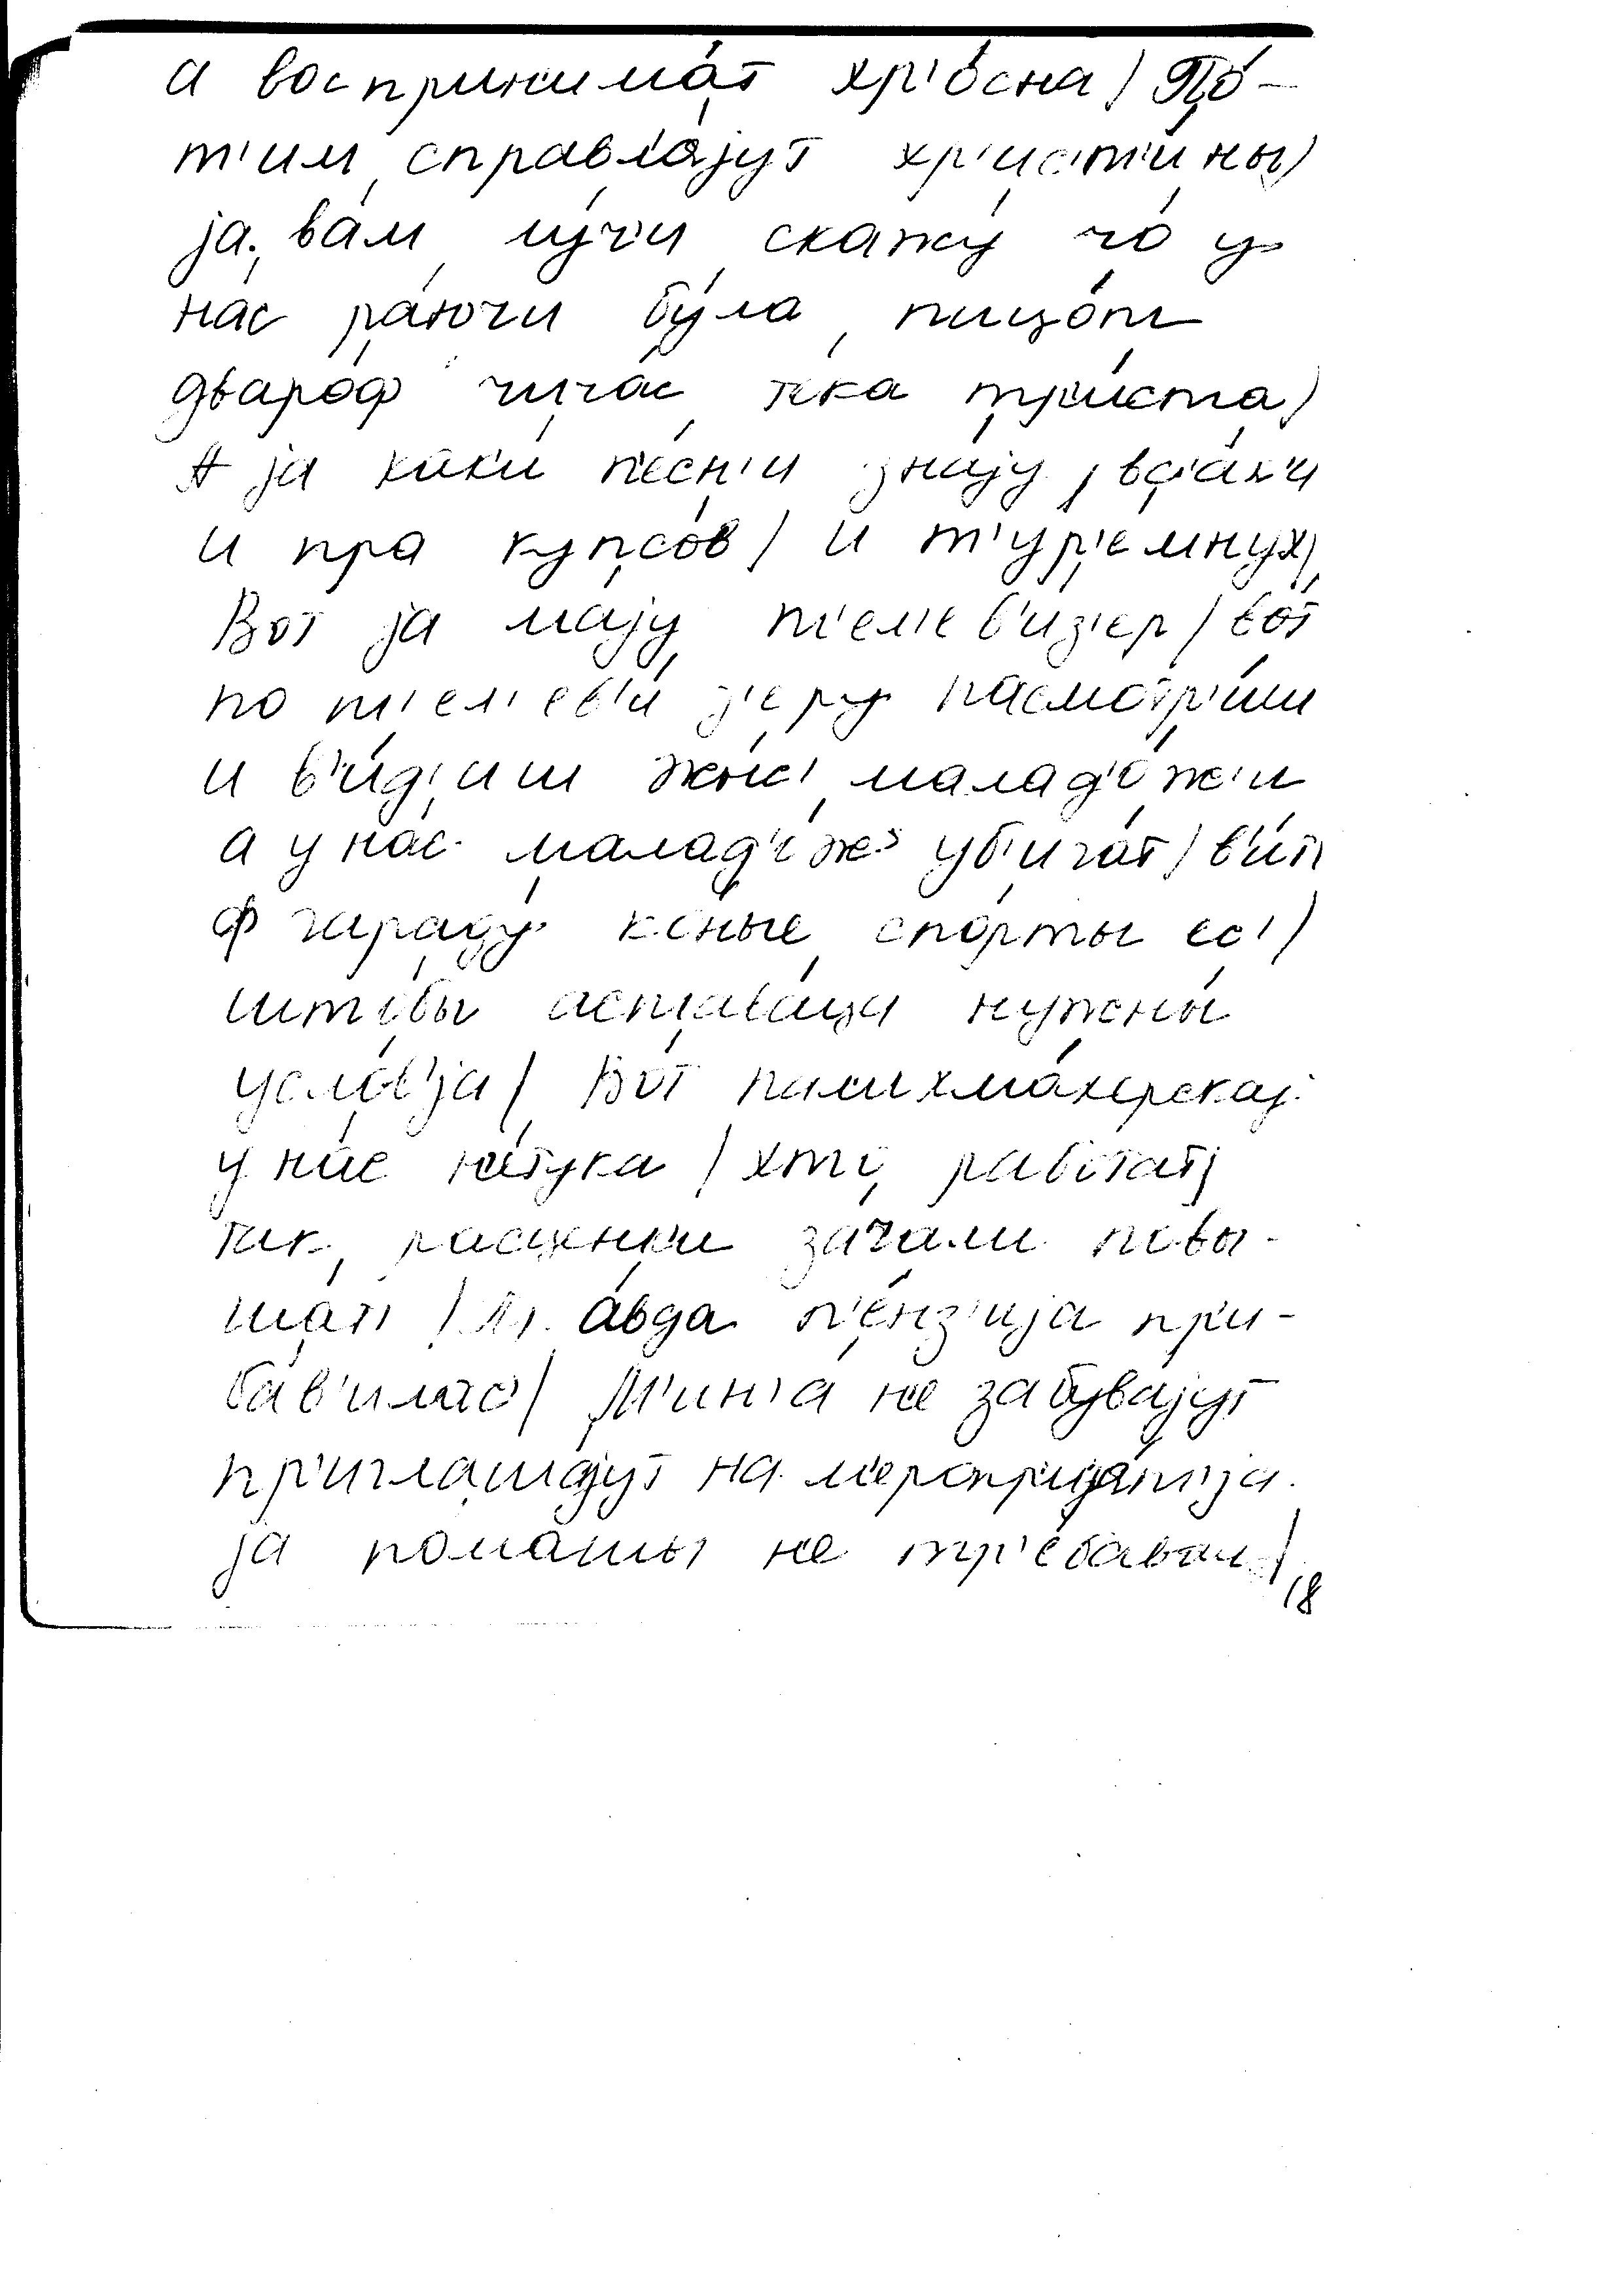 а воспринима́т хр'о́сна / По́-
т'им справл'а́јут хр'ис'т'и́ны /
ја вам лу́ч'и скажу́ чо у
нас ра́н'ччи бу́ла пицо́т
дваро́ф чича́с то́ка три́ста /
А ја каки́ п'е́сн'и зна́ју, вс'а́к'и
и пра купсо́в / и т'ур'е́мнух /
Вот ја ма́ју т'ел'ев'и́з'ер / во́т
по т'ел'ев'и́з'еру пасмо́тр'иш
и в'и́д'иш жыс' малад'о́ж'и
а у нас малад'о́ж уб'ига́т / в'ит'
ф гараду́ ко́ные спо́рты ес' /
што́бы астава́ца нужны́
усло́в'ја / Во́т парихма́херскај
у на́с не́тука / хто́ рабо́тат /
так расце́нк'и зача́ли повы-
ша́т' / Пр'а́вда п'е́нз'ија при-
ба́в'илас' / М'ин'а́ не забува́јут
пр'иглаша́јут на м'еропр'ија́т'ија
ја по́машы не тр'е́бавал /
18